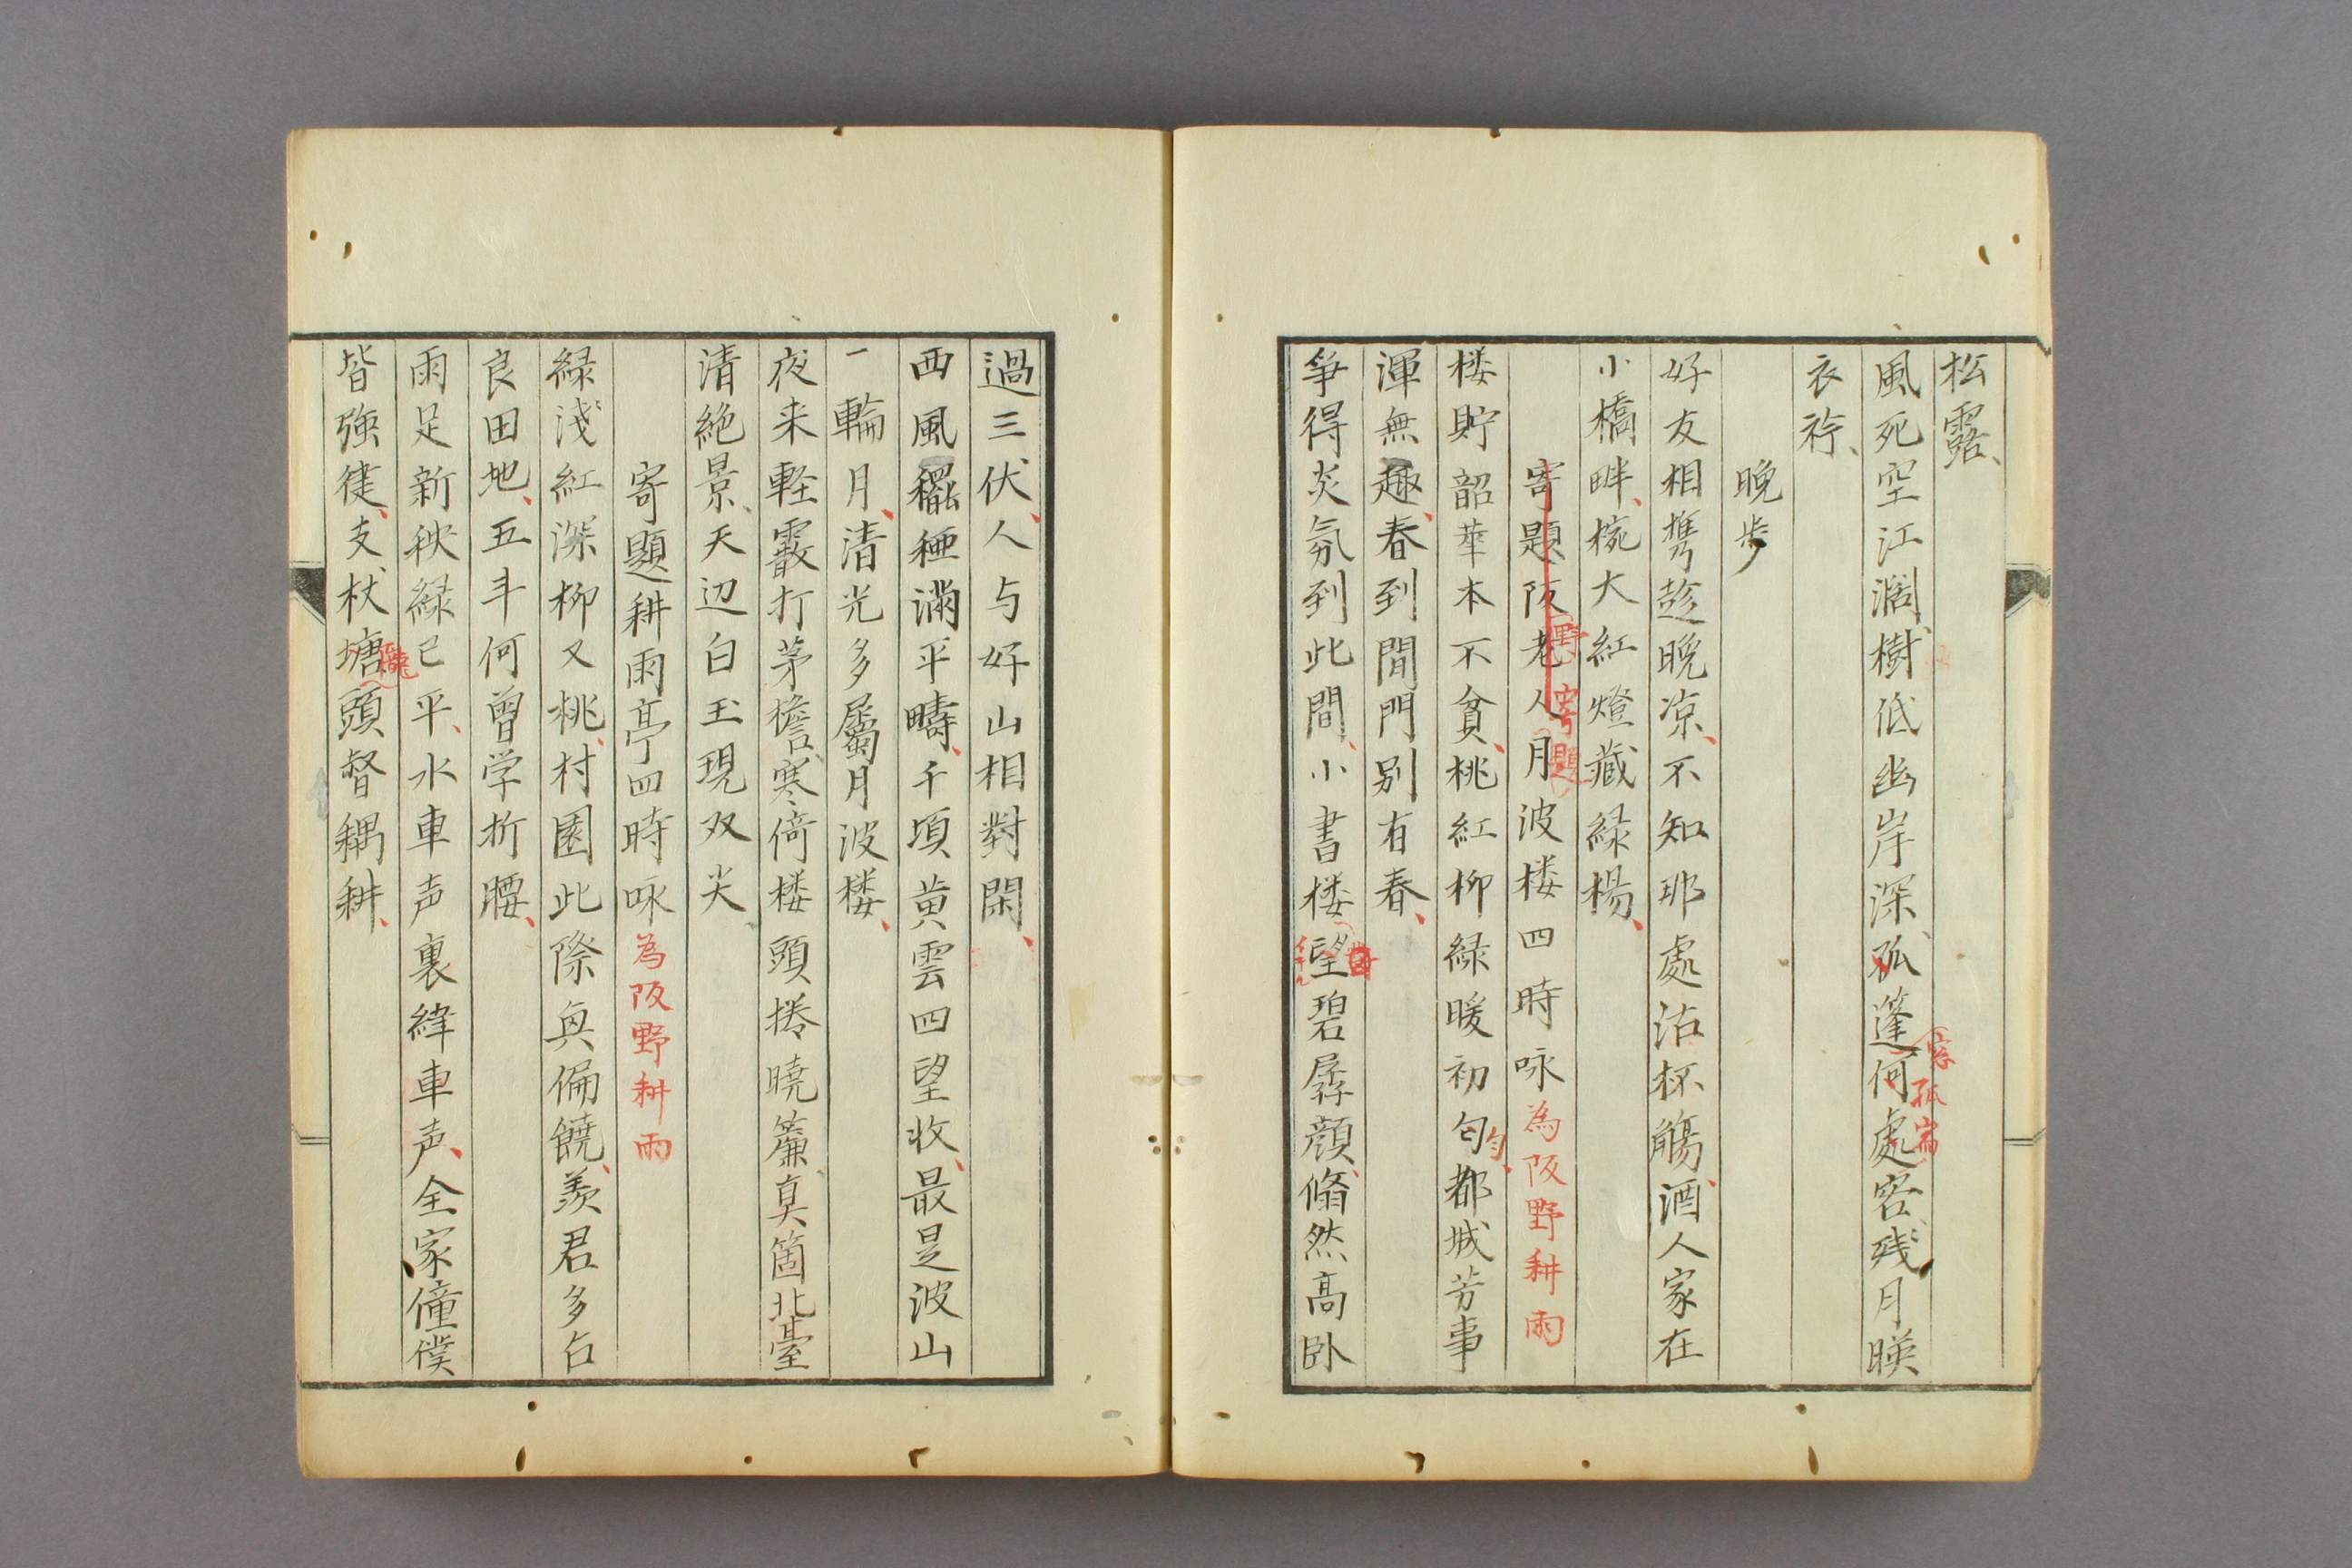 松露、
風死空江濶、樹低幽岸深、孤蓬何處客、残月暎
衣衸、
晩歩
好友相携趁晩凉、不知那處沽杯觴、酒人家在
小橋畔、椀大紅燈藏緑楊、
寄題阪老人月波楼四時咏為阪野耕雨
野
寄題
楼貯韶華本不貧、桃紅柳緑暖初匂、都城芳事
匀
渾無趣、春到間門別有春、
争得炎氛到此間、小書楼望碧孱顔、翛然高卧
過三伏、人与好山相對閑、
西風䆉稏満平疇、千頃黄雲四望收、最是波山
一輪月、清光多屬月波楼、
夜来軽霰打茅檐、寒倚楼頭捲暁簾、真箇北臺
清絶景、天辺白玉現双尖、
寄題耕雨亭四時咏為阪野耕雨
緑浅紅深柳又桃、村園此際真偏饒、羨君多占
良田地、五斗何曽学折腰、
雨足新秧緑已平、水車声裏緯車声、全家僮僕
皆強健、支杖塘頭督耦耕、